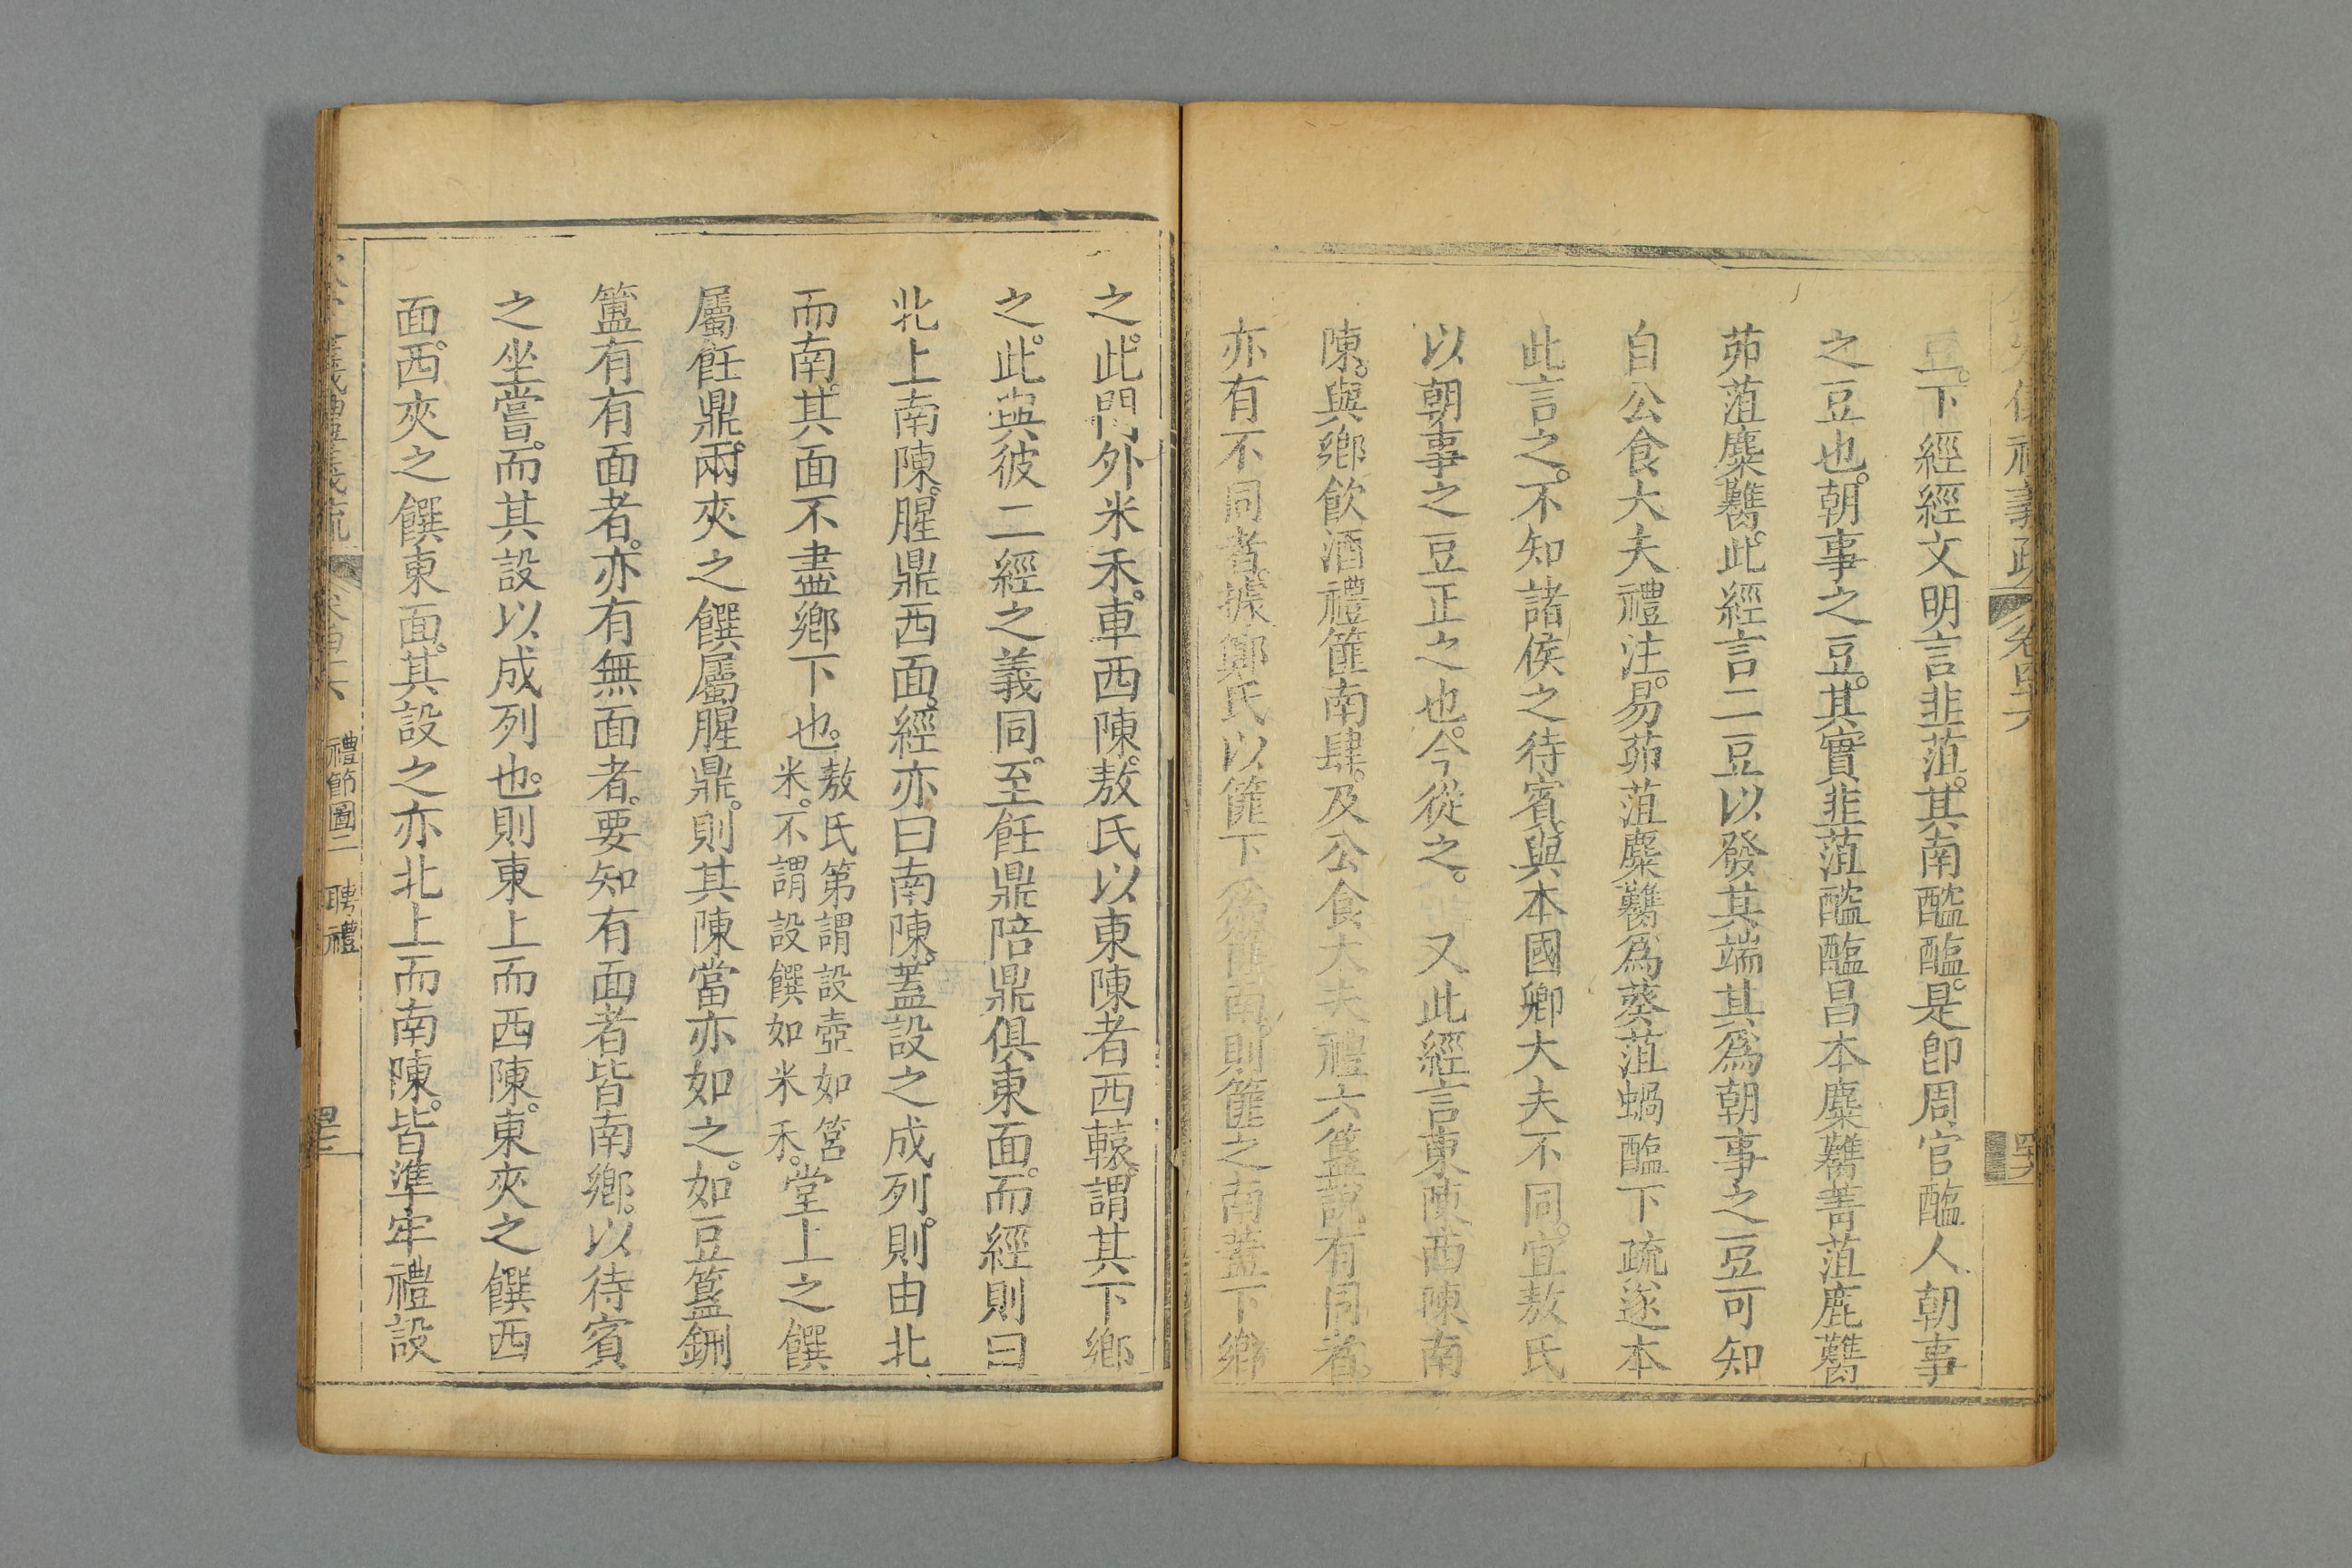 義疏 卷四十六
豆。下經經文明言韭菹。其南醓醢。是卽周官醢人朝事
之豆也。朝事之豆。其實韭菹醓醢昌本麋臡菁菹鹿臡
茆菹麋臡。此經言二豆以發其端其爲朝事之豆可知
自公食大夫禮注。易茆菹麋臡爲葵菹蝸醢下疏遂本
此言之。不知諸侯之待賓與本國卿大夫不同。宜敖氏
以朝事之豆正之也。今從之。 又此經言東陳西陳南
陳。與鄉飲酒禮篚南肆。及公食大夫禮六簋說有同者。
亦有不同者。據鄭氏以篚下爲篚南。則篚之南蓋下鄉
之。此門外米禾。車西陳。敖氏以東陳者西轅。謂其下鄉
之。此與彼二經之義同。至飪鼎陪鼎俱東面。而經則曰
北上南陳。腥鼎西面。經亦曰南陳。蓋設之成列。則由北
而南。其面不盡鄉下也。敖氏第謂設壺如筥
米。不謂設饌如米禾。堂上之饌
屬飪鼎。兩夾之饌屬腥鼎。則其陳當亦如之。如豆簋鉶
簠有有面者。亦有無面者。要知有面者皆南鄉。以待賓
之坐嘗。而其設以成列也。則東上而西陳。東夾之饌西
面。西夾之饌東面。其設之亦北上而南陳。皆準牢禮設
禮節圖二 聘禮